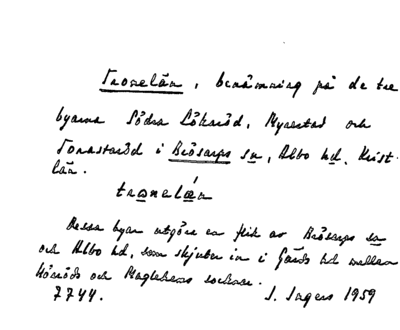 Tronelän, benämning på de tre
byarna Södra Lökaröd, Myrestad och
Tonastaröd i Brösarps sn, Albo hd, Krist.
län.
tronelän
Dessa byar utgöra en flik av Brösarps sn
och Albo hd, som skjuter in i Gärds hd mellan
Hörröds och Maglehems socknar.
7744. J. Ingers 1959